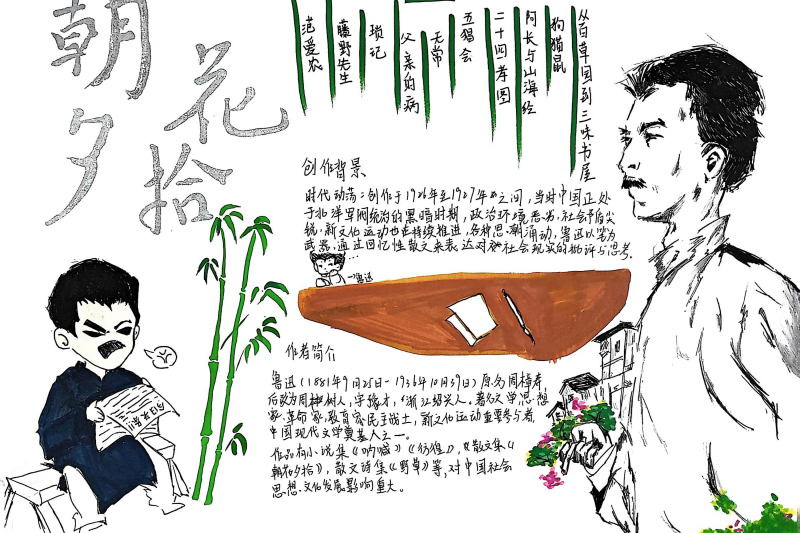 朝花夕拾
从百草园到三味书屋
狗猫鼠
阿长与山海经
二十四孝图
五猖会
无常
父亲的病
琐记
藤野先生
范爱农
创作背景
时代动荡：创作于1926年至1927年之间，当时中国正处
于北洋军阀统治的黑暗时期，政治环境恶劣，社会矛盾尖
锐，新文化运动也在持续推进，各种思潮涌动，鲁迅以笔为
武器，通过回忆性散文来表达对社会现实的批评与思考。
鲁迅
作者简介
鲁迅（1881年9月25日-1936年10月39日）原名周樟寿
后改为周树人，字豫才，浙江绍兴人。著名文学思想
家、革命家、教育家、民主战士，新文化运动重要参与者，
中国现代文学奠基人之一。
作品有小说集《呐喊》《彷徨》，散文集《
朝花夕拾》，散文诗集《野草》等，对中国社会
思想、文化发展影响重大。